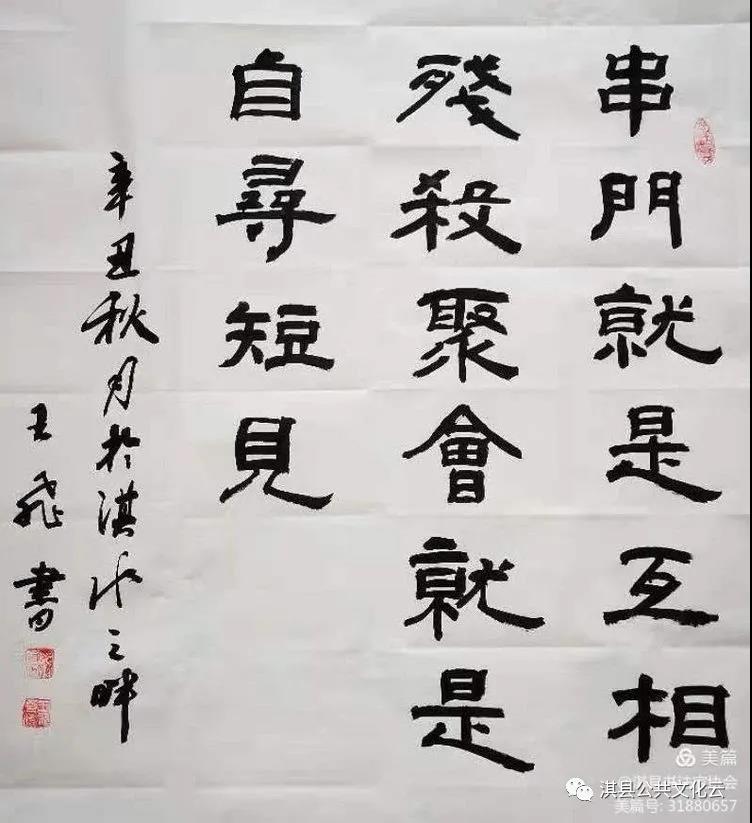 串門就是互相
殘殺聚會就是
自尋短見
辛丑秋月於淇水之畔
王飛書
美篇
@淇县书法家协会
淇县公共文化云
美篇号: 31880657